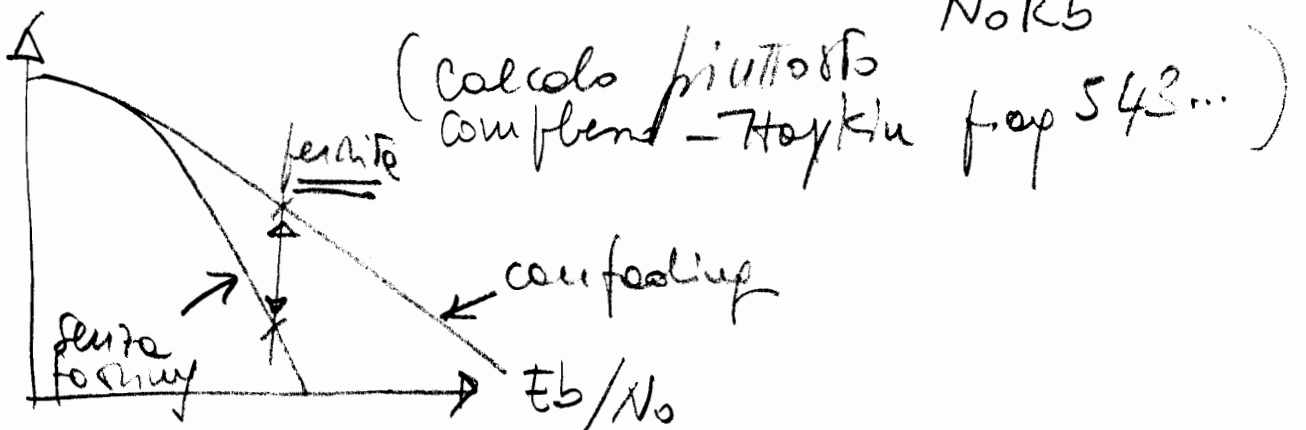 NoRb
(Calcolo piuttosto
complesso - Haykin pag 543...)
perdita
con fading
senza
fading
Eb/No